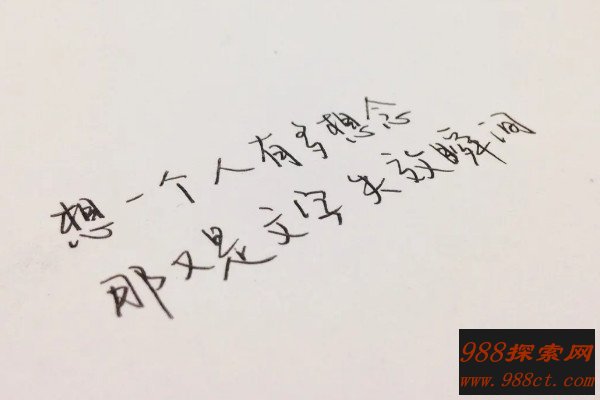 想一个人有多想念
那又是文字失效瞬间
988探索网
www.988ct.com